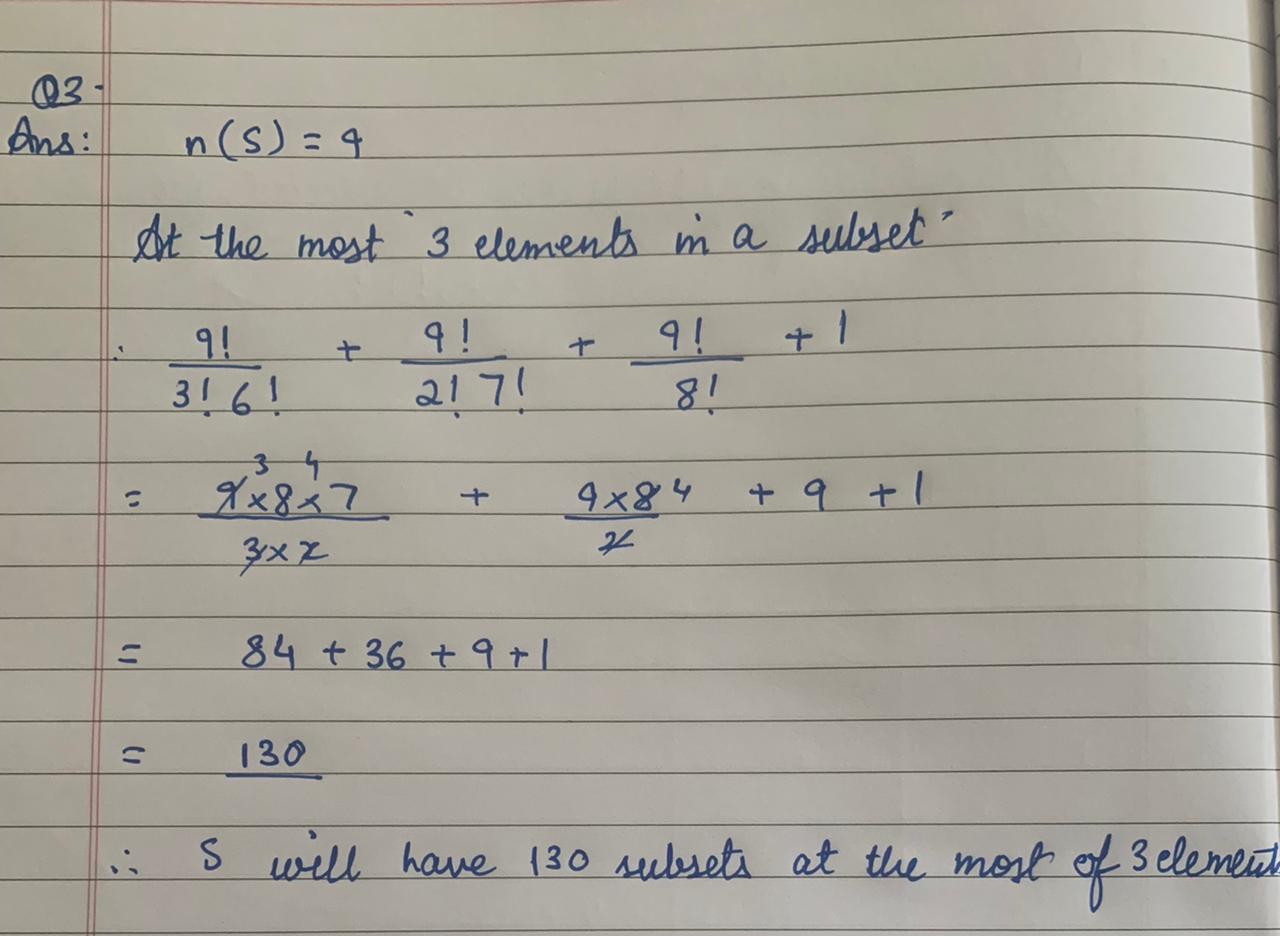 Q3-
Ans: n(S) = 9
At the most "3 elements in a subset"
∴ 9!/3!6! + 9!/2!7! + 9!/8! + 1
= 9×8×7/3×2 3 4 + 9×8/2 4 + 9 + 1
= 84 + 36 + 9 + 1
= 130
∴ S will have 130 subsets at the most of 3 element